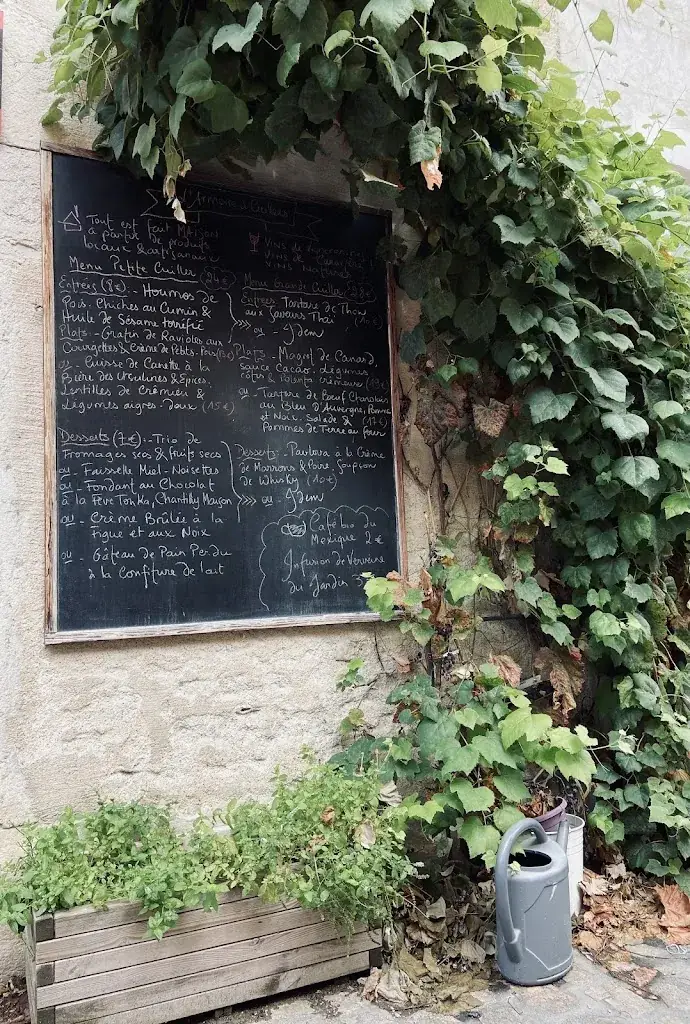 Tout est fait Maison
à partir de produits
locaux & artisanaux
Vins de
Vins de
Vins naturels
Menu Petite Cuiller (24€)
Entrées (8€) - Houmos de
Pois. Chiches au Cumin &
Huile de Sésame torréfié
Plats - Gratin de Ravioles aux
Courgettes & Crème de Petits. Pois
ou - Cuisse de Canette à la
Bière des Ursulines & Épices.
Lentilles de Crémieu &
Légumes aigres-doux (15€)
Desserts (7€) - Trio de
Fromages secs & fruits secs
ou - Faisselle Miel - Noisettes
ou - Fondant au Chocolat
à la Fève Tonka, Chantilly Maison
ou - Crème Brûlée à la
Figue et aux Noix
ou - Gâteau de Pain Perdu
à la Confiture de lait
Menu Grande Cuiller
Entrées Tartare de Thon
aux Saveurs Thaï
ou - Idem
Plats - Magret de Canard,
sauce Cacao. Légumes
& Polenta crémeuse
ou - Tartare de Bœuf Charolais
au Bleu d'Auvergne, Pomme
et Noix. Salade &
Pommes de Terre au four
Desserts - Pavlova à la Crème
de Marrons & Poire, Soupçon
de Whisky (10€)
ou - Idem
Café bio du
Mexique 2€
Infusion de Verveine
du Jardin